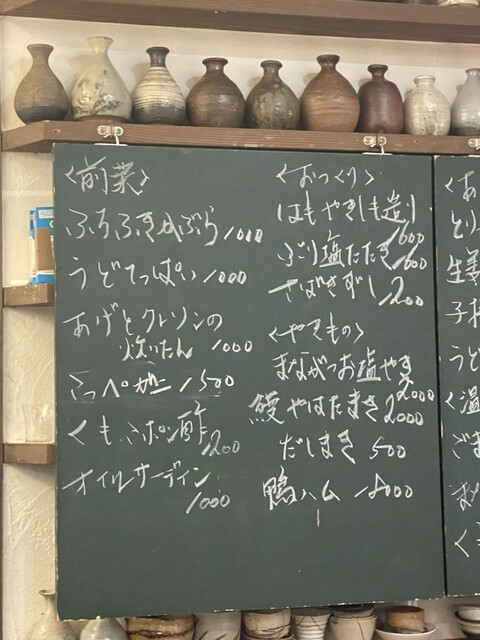 <前菜>
ふろふきかぶら 1000
うどてっぱい 1000
あげとクレソンの
炊いたん 1000
1500
くもこポン酢
1200
オイルサーディン
1000
<おつくり>
はもやきしも造り
1600
ぶり塩たたき 1600
さばきずし 1200
<やきもの>
まながつお塩やき
2000
鰻やはたまき 2000
だしまき 500
鴨ハム
<あ
とり
生姜
うど
<温
ごま